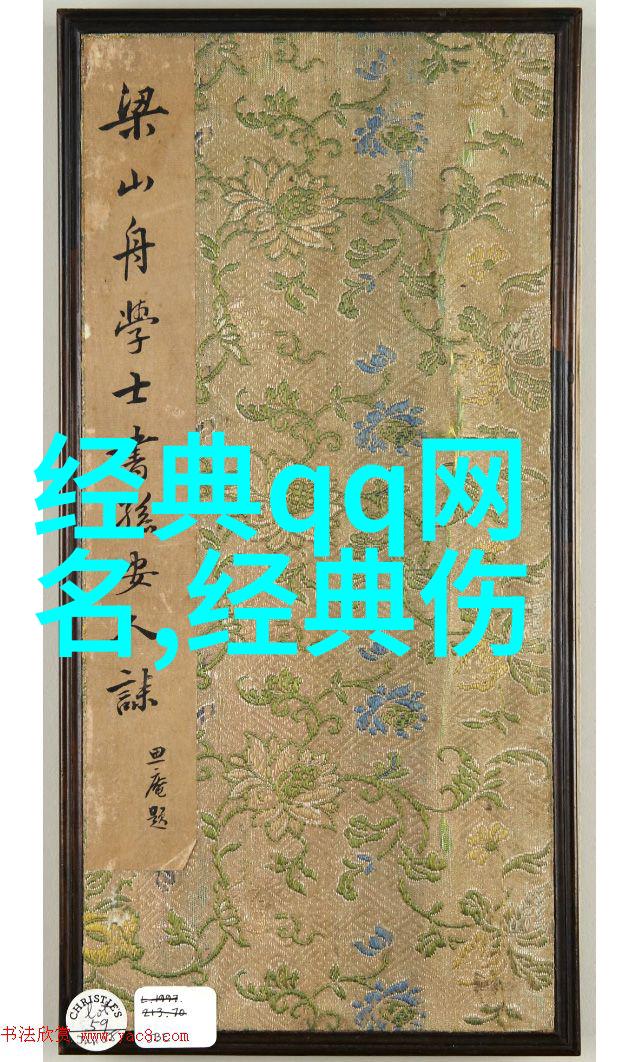 梁山舟學士書孫安人誄
思庵題
经典qq网
名,经典伤
CHRISTIE'S
lot
59
L.1997.
213.70
书法欣赏 www.yac8.com